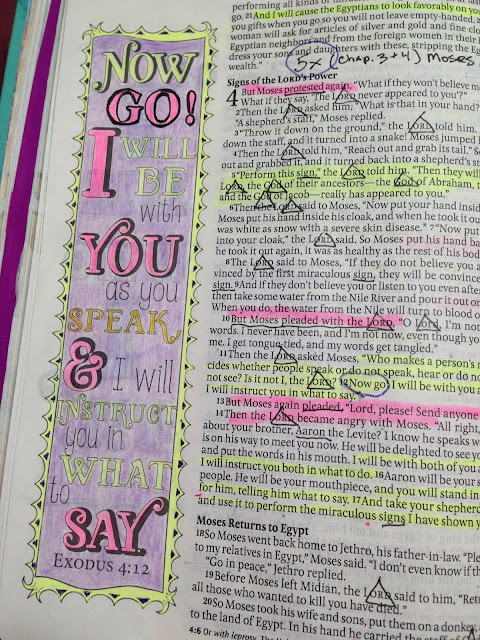 NOW
GO!
I WILL
BE
with
YOU
as you
SPEAK
& I will
INSTRUCT
you in
WHAT
to
SAY
EXODUS 4:12
performing all kinds of
go. 21And I will cause the Egyptians to look favorably on yo
you gifts when you go so you will not leave empty-handed.
woman will ask for articles of silver and gold and fine clo
Egyptian neighbors and from the foreign women in their
dress your sons and daughters with these, stripping the Eg
wealth."
5x (chap. 3+4) Moses
Signs of the LORD's Power
4 But Moses protested again, "What if they won't believe m
What if they say, 'The LORD never appeared to you'?"
2Then the LORD asked him, "What is that in your hand?
"A shepherd's staff," Moses replied.
3"Throw it down on the ground," the LORD told him.
down the staff, and it turned into a snake! Moses jumped
4Then the LORD told him, "Reach out and grab its tail."
out and grabbed it, and it turned back into a shepherd's st
5"Perform this sign," the LORD told him. "Then they will
LORD, the God of their ancestors—the God of Abraham,
and the God of Jacob—really has appeared to you."
6Then the LORD said to Moses, "Now put your hand insid
Moses put his hand inside his cloak, and when he took it ou
was white as snow with a severe skin disease. 7"Now put
into your cloak," the LORD said. So Moses put his hand ba
he took it out again, it was as healthy as the rest of his body
8The LORD said to Moses, "If they do not believe you a
vinced by the first miraculous sign, they will be convince
sign. 9And if they don't believe you or listen to you even after
then take some water from the Nile River and pour it out or
When you do, the water from the Nile will turn to blood o
10But Moses pleaded with the LORD, "O LORD, I'm not
words. I never have been, and I'm not now, even though yo
me. I get tongue-tied, and my words get tangled."
11Then the LORD asked Moses, "Who makes a person's
cides whether people speak or do not speak, hear or do no
not see? Is it not I, the LORD? 12Now go! I will be with you a
I will instruct you in what to say."
13But Moses again pleaded, "Lord, please! Send anyone
14Then the LORD became angry with Moses. "All right,
about your brother, Aaron the Levite? I know he speaks w
is on his way to meet you now. He will be delighted to see yo
and put the words in his mouth. I will be with both of you a
I will instruct you both in what to do. 16Aaron will be your s
people. He will be your mouthpiece, and you will stand in
for him, telling him what to say. 17And take your shepherd
and use it to perform the miraculous signs I have shown y
Moses Returns to Egypt
18So Moses went back home to Jethro, his father-in-law. "Ple
to my relatives in Egypt," Moses said. "I don't even know if th
"Go in peace," Jethro replied.
19Before Moses left Midian, the LORD said to him, "Retu
all those who wanted to kill you have died."
20So Moses took his wife and sons, put them on a donkey,
to the land of Egypt. In his hand he carried the staff of
4:6 Or with leprosy.